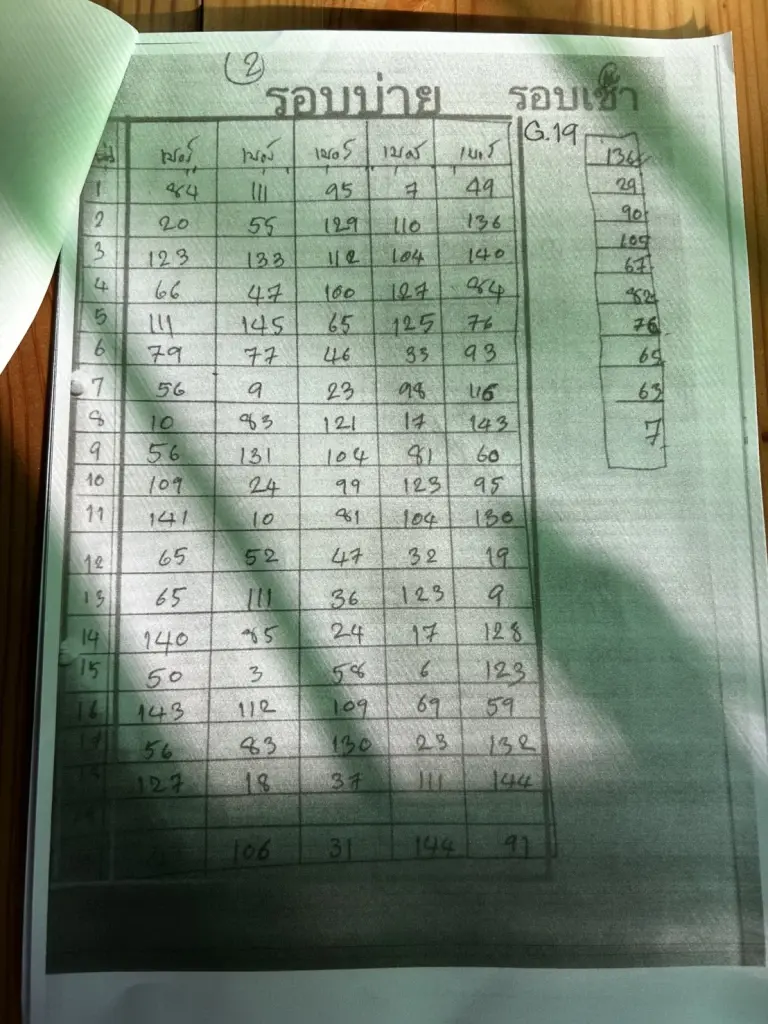 2
รอบบ่าย รอบเช้า
G.19
เบอร์ เบอร์ เบอร์ เบอร์ เบอร์
1 84 111 95 7 49
2 20 55 129 110 136
3 123 133 112 104 140
4 66 47 100 127 84
5 111 145 65 125 76
6 79 77 46 33 93
7 56 9 23 98 116
8 10 83 121 17 143
9 56 131 104 81 60
10 109 24 99 123 95
11 141 10 81 104 130
12 65 52 47 32 19
13 65 111 36 123 9
14 140 85 24 17 128
15 50 3 58 6 123
16 143 112 109 69 59
17 56 83 130 23 132
18 127 18 37 111 144
106 31 144 91
136
29
90
109
67
82
76
65
63
7